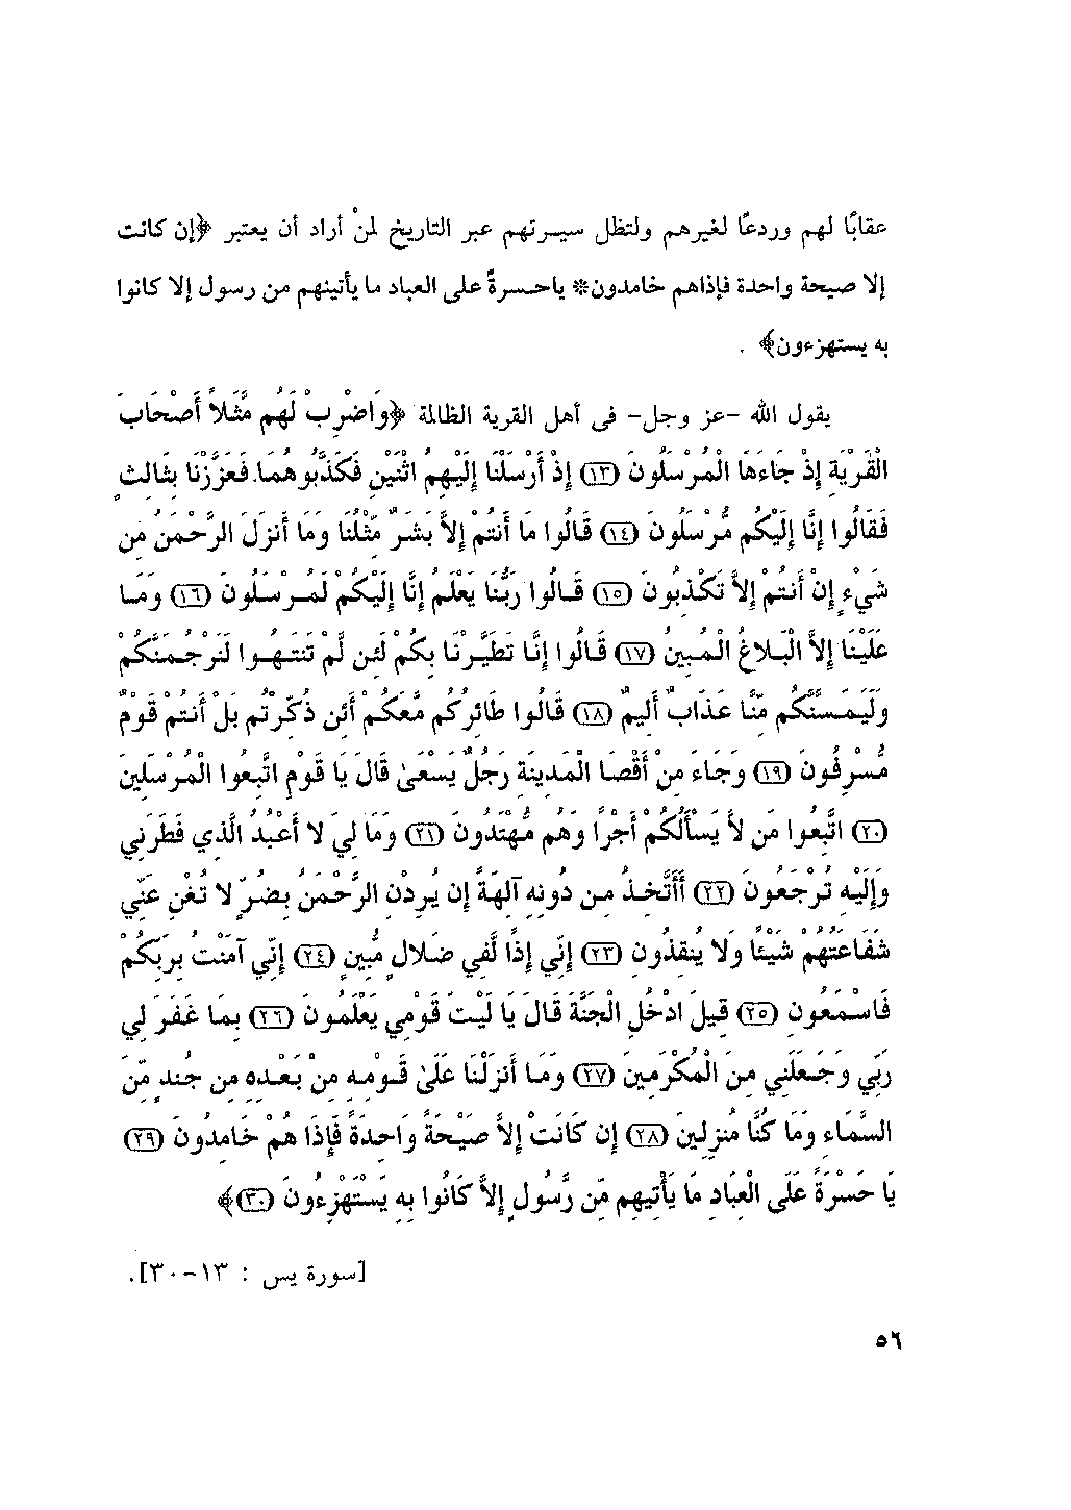 عقابًا لهم وردعًا لغيرهم ولتظل سيرتهم عبر التاريخ لمنْ أراد أن يعتبر ﴿إن كانت
إلا صيحة واحدة فإذاهم خامدون* ياحسرةً على العباد ما يأتينهم من رسول إلا كانوا
به يستهزءون﴾ .
يقول الله -عز وجل- فى أهل القرية الظالمة ﴿وَاضْرِبْ لَهُم مَّثَلاً أَصْحَابَ
الْقَرْيَةِ إِذْ جَاءَهَا الْمُرْسَلُونَ (١٣) إِذْ أَرْسَلْنَا إِلَيْهِمُ اثْنَيْنِ فَكَذَّبُوهُمَا فَعَزَّزْنَا بِثَالِثٍ
فَقَالُوا إِنَّا إِلَيْكُم مُّرْسَلُونَ (١٤) قَالُوا مَا أَنتُمْ إِلاَّ بَشَرٌ مِّثْلُنَا وَمَا أَنزَلَ الرَّحْمَنُ مِن
شَيْءٍ إِنْ أَنتُمْ إِلاَّ تَكْذِبُونَ (١٥) قَالُوا رَبُّنَا يَعْلَمُ إِنَّا إِلَيْكُمْ لَمُرْسَلُونَ (١٦) وَمَا
عَلَيْنَا إِلاَّ الْبَلاغُ الْمُبِينُ (١٧) قَالُوا إِنَّا تَطَيَّرْنَا بِكُمْ لَئِن لَّمْ تَنتَهُوا لَنَرْجُمَنَّكُمْ
وَلَيَمَسَّنَّكُم مِّنَّا عَذَابٌ أَلِيمٌ (١٨) قَالُوا طَائِرُكُم مَّعَكُمْ أَئِن ذُكِّرْتُم بَلْ أَنتُمْ قَوْمٌ
مُّسْرِفُونَ (١٩) وَجَاءَ مِنْ أَقْصَا الْمَدِينَةِ رَجُلٌ يَسْعَىٰ قَالَ يَا قَوْمِ اتَّبِعُوا الْمُرْسَلِينَ
(٢٠) اتَّبِعُوا مَن لاَّ يَسْأَلُكُمْ أَجْرًا وَهُم مُّهْتَدُونَ (٢١) وَمَا لِيَ لا أَعْبُدُ الَّذِي فَطَرَنِي
وَإِلَيْهِ تُرْجَعُونَ (٢٢) أَأَتَّخِذُ مِن دُونِهِ آلِهَةً إِن يُرِدْنِ الرَّحْمَنُ بِضُرٍّ لا تُغْنِ عَنِّي
شَفَاعَتُهُمْ شَيْئًا وَلا يُنقِذُونِ (٢٣) إِنِّي إِذًا لَّفِي ضَلالٍ مُّبِينٍ (٢٤) إِنِّي آمَنتُ بِرَبِّكُمْ
فَاسْمَعُونِ (٢٥) قِيلَ ادْخُلِ الْجَنَّةَ قَالَ يَا لَيْتَ قَوْمِي يَعْلَمُونَ (٢٦) بِمَا غَفَرَ لِي
رَبِّي وَجَعَلَنِي مِنَ الْمُكْرَمِينَ (٢٧) وَمَا أَنزَلْنَا عَلَىٰ قَوْمِهِ مِنْ بَعْدِهِ مِن جُندٍ مِّنَ
السَّمَاءِ وَمَا كُنَّا مُنزِلِينَ (٢٨) إِن كَانَتْ إِلاَّ صَيْحَةً وَاحِدَةً فَإِذَا هُمْ خَامِدُونَ (٢٩)
يَا حَسْرَةً عَلَى الْعِبَادِ مَا يَأْتِيهِم مِّن رَّسُولٍ إِلاَّ كَانُوا بِهِ يَسْتَهْزِءُونَ (٣٠)﴾
[سورة يس : ١٣-٣٠].
٥٦